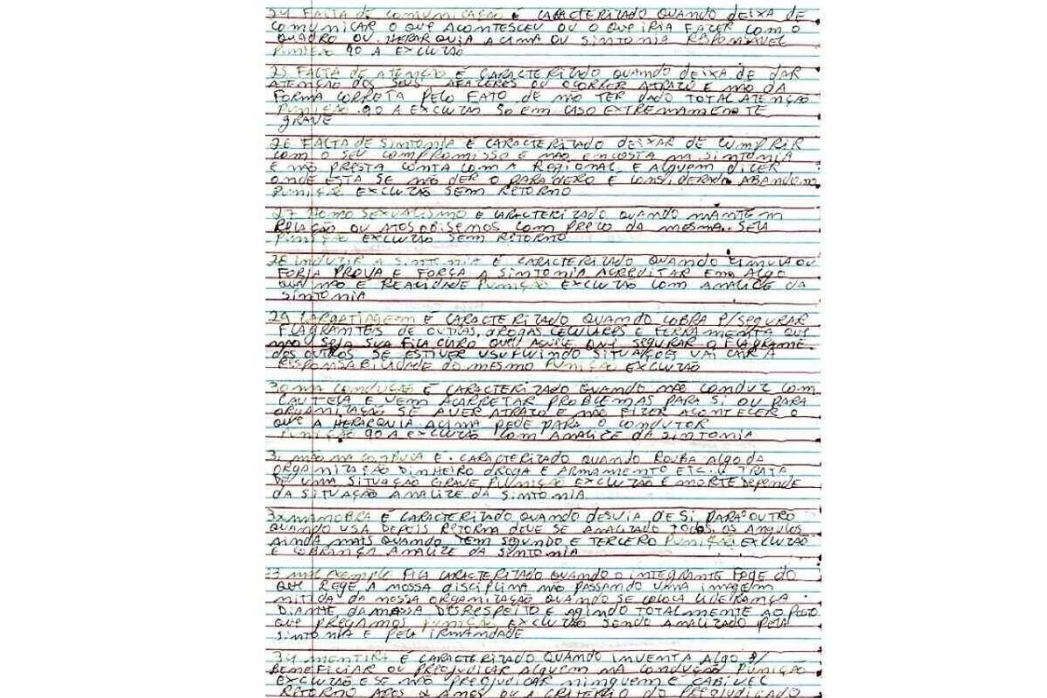 24 FALTA DE COMUNICAÇÃO É CARACTERIZADO QUANDO DEIXA DE
COMUNICAR O QUE ACONTESCEU OU O QUE IRIA FAZER COM O
QUADRO OU HERARQUIA ACIMA OU SINTONIA RESPONSAVEL
PUNIÇÃO 90 A EXCLUZÃO
25 FALTA DE ATENÇÃO É CARACTERIZADO QUANDO DEIXA DE DAR
ATENÇÃO DOS SEUS AFAZERES OU OCORRER ATRAZO E NÃO DA
FORMA CORRETA PELO FATO DE NÃO TER DADO TOTAL ATENÇÃO
PUNIÇÃO 90 A EXCLUZÃO SO EM CASO EXTREMAMENTE
GRAVE
26 FALTA DE SINTONIA É CARACTERIZADO DEIXAR DE CUMPRIR
COM O SEU COMPROMISSO E NÃO ENCOSTA NA SINTONIA
E NÃO PRESTA CONTA COM A REGIONAL E ALGUEM DICER
ONDE ESTA SE NÃO DER O PARADEIRO É CONSIDERADO
PUNIÇÃO EXCLUZÃO SEM RETORNO
27 HOMO SEXUALISMO É CARACTERIZADO QUANDO MANTEM
RELAÇÃO OU ATOS COM DA MESMA
PUNIÇÃO EXCLUZÃO SEM RETORNO
28 INDUZIR A SINTONIA É CARACTERIZADO QUANDO SIMULA OU
FORJA PROVA E FORÇA A SINTONIA ACREDITAR EM ALGO
QUE NÃO É REALIDADE PUNIÇÃO EXCLUZÃO COM ANALIZE DA
SINTONIA
29 É CARACTERIZADO QUANDO COBRA P/ SEGURAR
FLAGRANTES DE OUTROS, DROGAS CELULARES E FERRAMENTA QUE
NÃO SEJA SUA FICA CLARO QUE AQUELE QUE SEGURAR O FLAGRANTE
DOS OUTROS SE ESTIVER USUFLUINDO SITUAÇÕES VAI CAIR A
RESPONSABILIDADE DO MESMO PUNIÇÃO EXCLUZÃO
30 MA CONDUÇÃO É CARACTERIZADO QUANDO NÃO CONDUZ COM
CAUTELA E VEM ACARRETAR PROBLEMAS PARA SI OU PARA
ORGANIZAÇÃO SE AVER ATRAZO E NÃO FIZER ACONTECER O
QUE A HERARQUIA ACIMA PEDE PARA O CONDUTOR
PUNIÇÃO 90 A EXCLUZÃO COM ANALIZE DA SINTONIA
31 MÃO NA CUMBUCA É CARACTERIZADO QUANDO ROUBA ALGO DA
ORGANIZAÇÃO DINHEIRO DROGA E ARMAMENTO ETC.. TRATA
DE UMA SITUAÇÃO GRAVE PUNIÇÃO EXCLUZÃO E MORTE DEPENDE
DA SITUAÇÃO ANALIZE DA SINTONIA
32 MANOBRA É CARACTERIZADO QUANDO DESVIA DE SI PARA OUTRO
QUANDO USA DEPOIS RETORNA DEVE SE ANALIZADO TODOS OS ANGULOS
AINDA MAIS QUANDO TEM SEGUNDO E TERCERO PUNIÇÃO EXCLUZÃO
E COBRANÇA ANALIZE DA SINTONIA
33 MAL EXEMPLO FICA CARACTERIZADO QUANDO O INTEGRANTE FOGE DO
QUE REGE A NOSSA DISCIPLINA NÃO PASSANDO UMA IMAGEM
NITIDA DA NOSSA ORGANIZAÇÃO QUANDO SE COLOCA LIDERANÇA
DIANTE DA MASSA DESRESPEITO E AGINDO TOTALMENTE AO POSTO
QUE PREGAMOS PUNIÇÃO EXCLUZÃO SENDO ANALIZADO PELA
SINTONIA E PELA IRMANDADE
34 MENTIRA É CARACTERIZADO QUANDO INVENTA ALGO P/
BENEFICIAR OU PREJUDICAR ALGUEM NA CONDUÇÃO PUNIÇÃO
EXCLUZÃO E SE NÃO PREJUDICAR NINGUEM É CABIVEL
RETORNO APOS 2 ANOS OU A CRITERIO DO PREJUDICADO